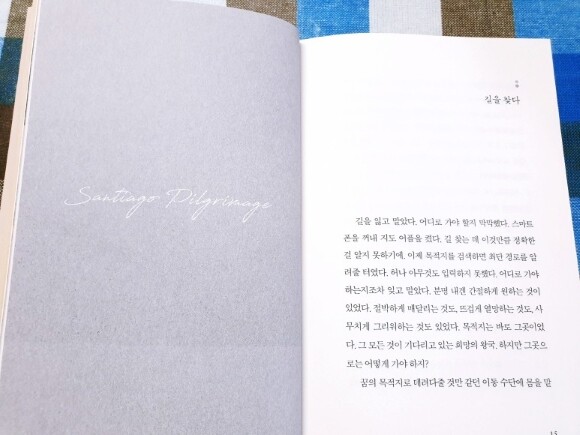 Santiago Pilgrimage
길을 찾다
길을 잃고 말았다. 어디로 가야 할지 막막했다. 스마트
폰을 꺼내 지도 어플을 켰다. 길 찾는 데 이것만큼 정확한
길 알지 못하기에. 이제 목적지를 검색하면 최단 경로를 알
려줄 터였다. 허나 아무것도 입력하지 못했다. 어디로 가야
하는지조차 잊고 말았다. 분명 내겐 간절하게 원하는 것이
있었다. 절박하게 매달리는 것도, 뜨겁게 열망하는 것도, 사
무치게 그리워하는 것도 있었다. 목적지는 바로 그곳이었
다. 그 모든 것이 기다리고 있는 희망의 왕국. 하지만 그곳으
로는 어떻게 가야 하지?
꿈의 목적지로 데려다줄 것만 같던 이동 수단에 몸을 맡
15